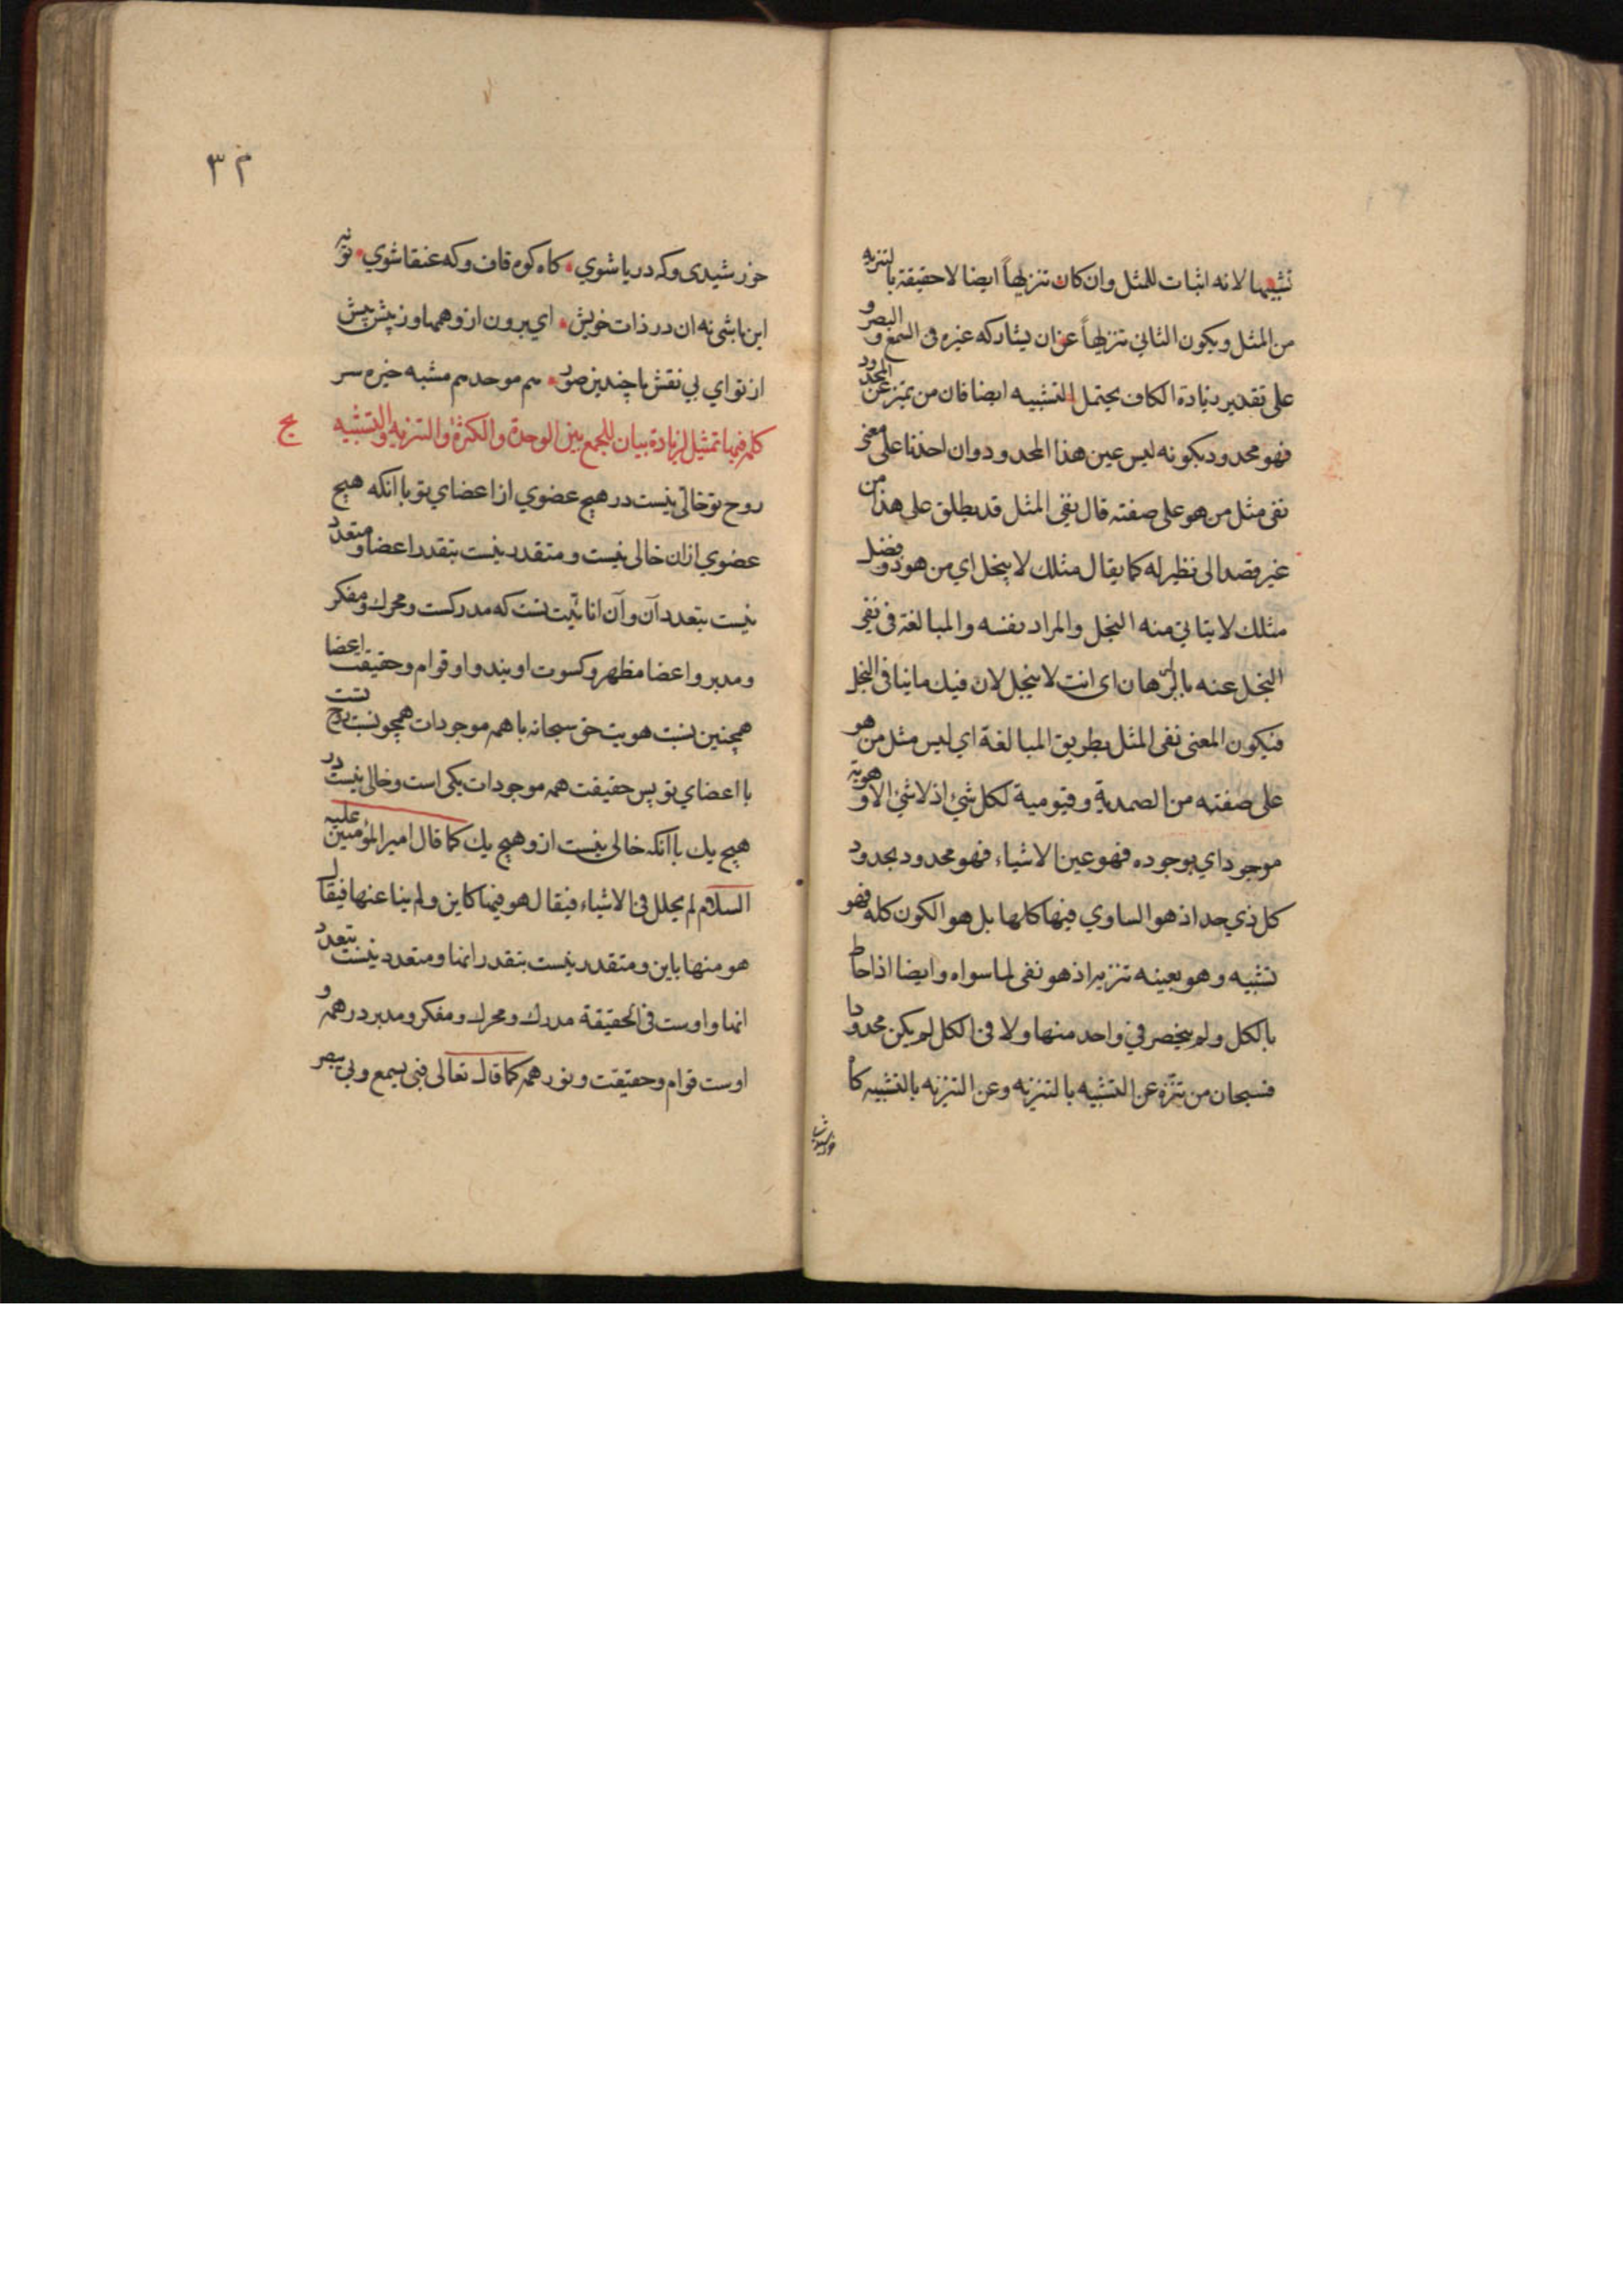 تشبيها لانه اثبات للمثل وان كان تنزيهاً ايضا لاحقيقة بالتنزيه
من المثل ويكون الثاني تنزيهاً عن ان يشاركه غيره فى السمع والبصر و
على تقدير زيادة الكاف يحتمل التشبيه ايضا فان من تميز عن المحدود
فهو محدود بكونه ليس عين هذا المحدود وان اخذنا على معنى
نفى مثل من هو على صفته قال نفى المثل قد يطلق على هذا من
غير قصد الى نظير له كما يقال مثلك لا يبخل اي من هو ذو فضل
مثلك لا يتاتى منه البخل والمراد نفسه والمبالغة فى نفى
البخل عنه بالبرهان اى انت لا يبخل لان فيك ما ينافى البخل
فيكون المعنى نفى المثل بطريق المبالغة اي ليس مثل من هو
على صفته من الصمدية وقيومية لكل شئ اذ لا شئ الا وهويته
موجود اي بوجوده فهو عين الاشياء فهو محدود بحدود
كل ذي حد اذ هو الساوي فيها كلها بل هو الكون كله فهو
تشبيه وهو بعينه تنزيه اذ هو نفى لما سواه وايضا اذا احاط
بالكل ولم ينحصر في واحد منها ولا فى الكل لم يكن محدودا
فسبحان من تنزه عن التشبيه بالتنزيه وعن التنزيه بالتشبيه كاه
خورشيدى
٣٢
خورشيدى وكه دريا شوي كاه كوه قاف وكه عنقا شوي تو نه
اين باشى نه ان در ذات خويش اي برون از وهمها وز پيش پيش
از تو اي بى نقش با چندين صور هم موحد هم مشبه خيره سر
كلمه فيها تمثيل لزيادة بيان للجمع بين الوحدة والكثرة والتنزيه والتشبيه
روح تو خالى نيست در هيچ عضوي از اعضاي تو با انكه هيچ
عضوي از ان خالى نيست و متقدر نيست بتقدر اعضا و متعدد
نيست بتعدد آن و آن انانيت تست كه مدركست و محرك و مفكر
و مدبر و اعضا مظهر و كسوت اويند و او قوام و حقيقت اعضا
همچنين نسبت هويت حق سبحانه با همه موجودات همچو نسبت روح تست
با اعضاي تو پس حقيقت همه موجودات يكى است و خالى نيست در
هيچ يك با آنكه خالى نيست ازو هيچ يك كما قال امير المؤمنين عليه
السلام لم يحلل فى الاشياء فيقال هو فيها كاين ولم ينا عنها فيقال
هو منها باين و متقدر نيست بتقدر انها و متعدد نيست بتعدد
انها و اوست فى الحقيقة مدرك و محرك و مفكر و مدبر در همه و
اوست قوام و حقيقت و نور همه كما قال تعالى فبى يسمع وبى يبصر